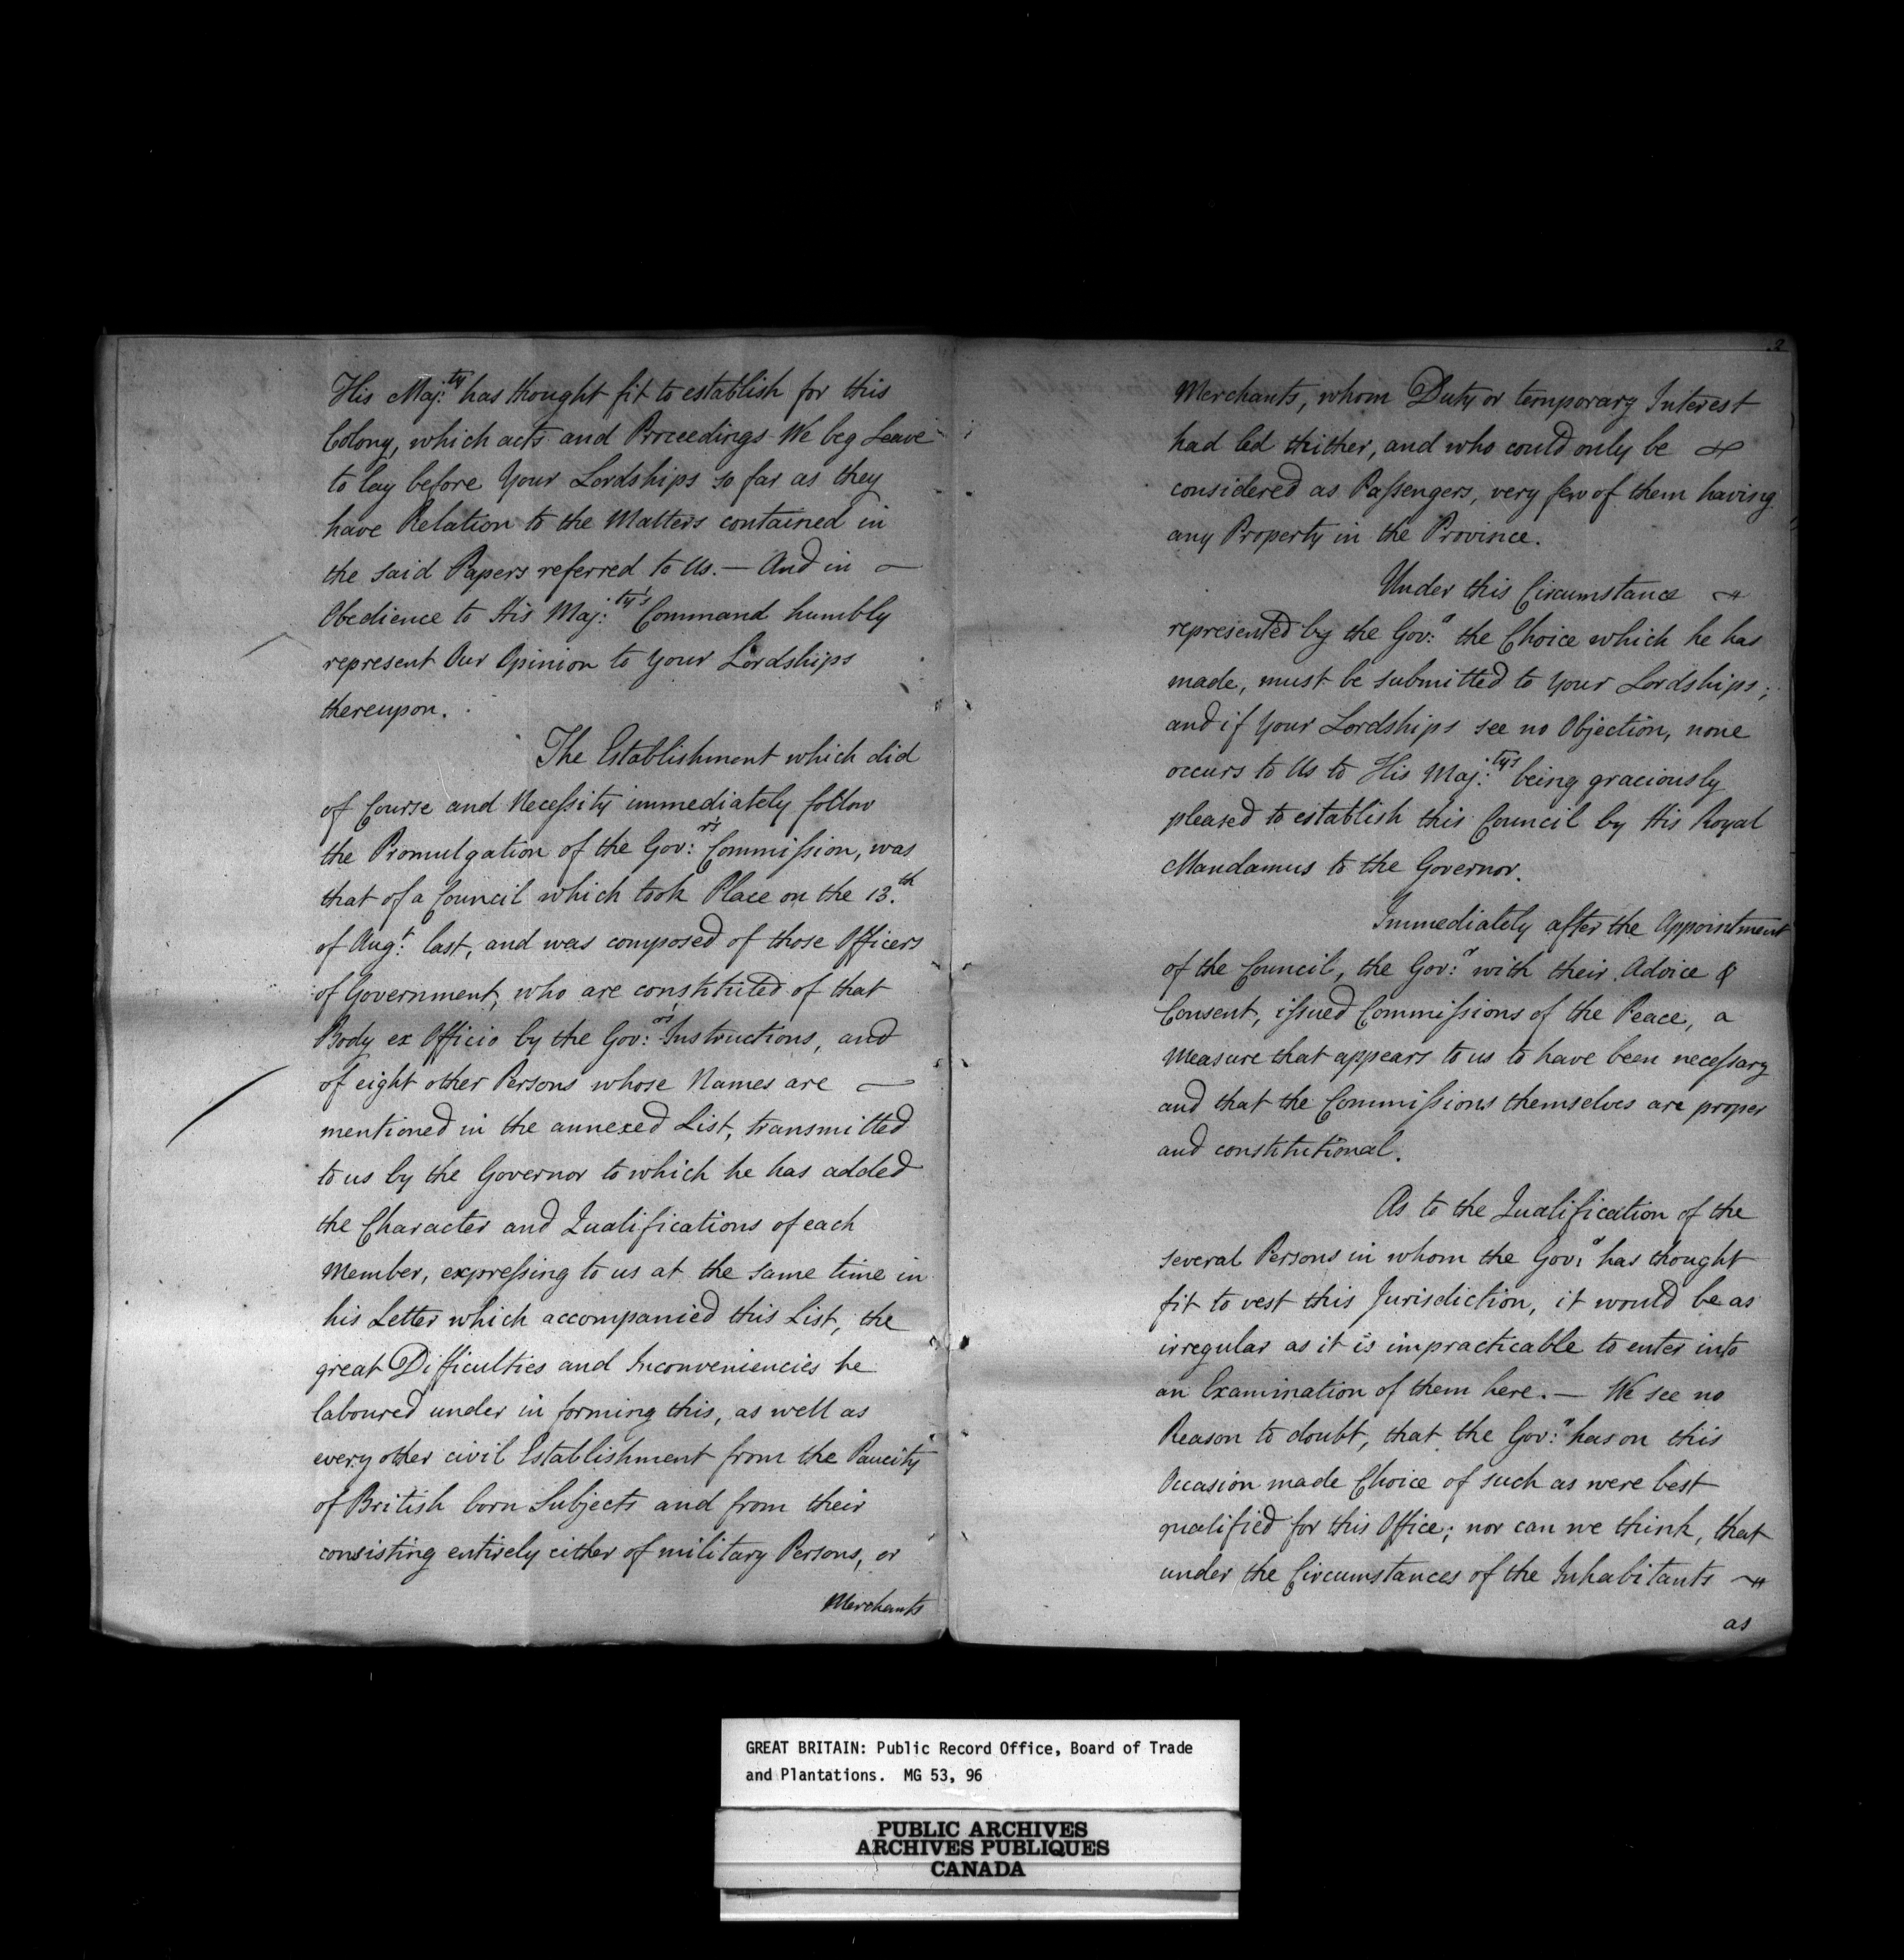 His Maj:ty has thought fit to establish for this
Colony, which acts and Proceedings We beg Leave
to lay before Your Lordships so far as they
have Relation to the Matters contained in
the said Papers referred to Us. — And in —
Obedience to His Maj:ty's Command humbly
represent Our Opinion to Your Lordships
thereupon.
The Establishment which did
of Course and Necessity immediately follow
the Promulgation of the Gov:r's Commission, was
that of a Council which took Place on the 13.th
of Aug:t last, and was composed of those Officers
of Government, who are constituted of that
Body ex Officio by the Gov:rs' Instructions, and
of eight other Persons whose Names are —
mentioned in the annexed List, transmitted
to us by the Governor to which he has added
the Character and Qualifications of each
Member, expressing to us at the same time in
his Letter which accompanied this List, the
great Difficulties and Inconveniencies he
laboured under in forming this, as well as
every other civil Establishment from the Paucity
of British born Subjects and from their
consisting entirely either of military Persons, or
Merchants
2
Merchants, whom Duty or temporary Interest
had led thither, and who could only be
considered as Passengers, very few of them having
any Property in the Province.
Under this Circumstance
represented by the Gov:r the Choice which he has
made, must be submitted to Your Lordships;
and if Your Lordships see no Objection, none
occurs to Us to His Maj:ty's being graciously
pleased to establish this Council by His Royal
Mandamus to the Governor.
Immediately after the Appointment
of the Council, the Gov:r with their Advice &
Consent, issued Commissions of the Peace, a
Measure that appears to us to have been necessary
and that the Commissions themselves are proper
and constitutional.
As to the Qualification of the
several Persons in whom the Gov:r has thought
fit to vest this Jurisdiction, it would be as
irregular as it is impracticable to enter into
an Examination of them here. — We see no
Reason to doubt, that the Gov:r has on this
Occasion made Choice of such as were best
qualified for this Office; nor can we think, that
under the Circumstances of the Inhabitants
as
GREAT BRITAIN: Public Record Office, Board of Trade
and Plantations. MG 53, 96
PUBLIC ARCHIVES
ARCHIVES PUBLIQUES
CANADA